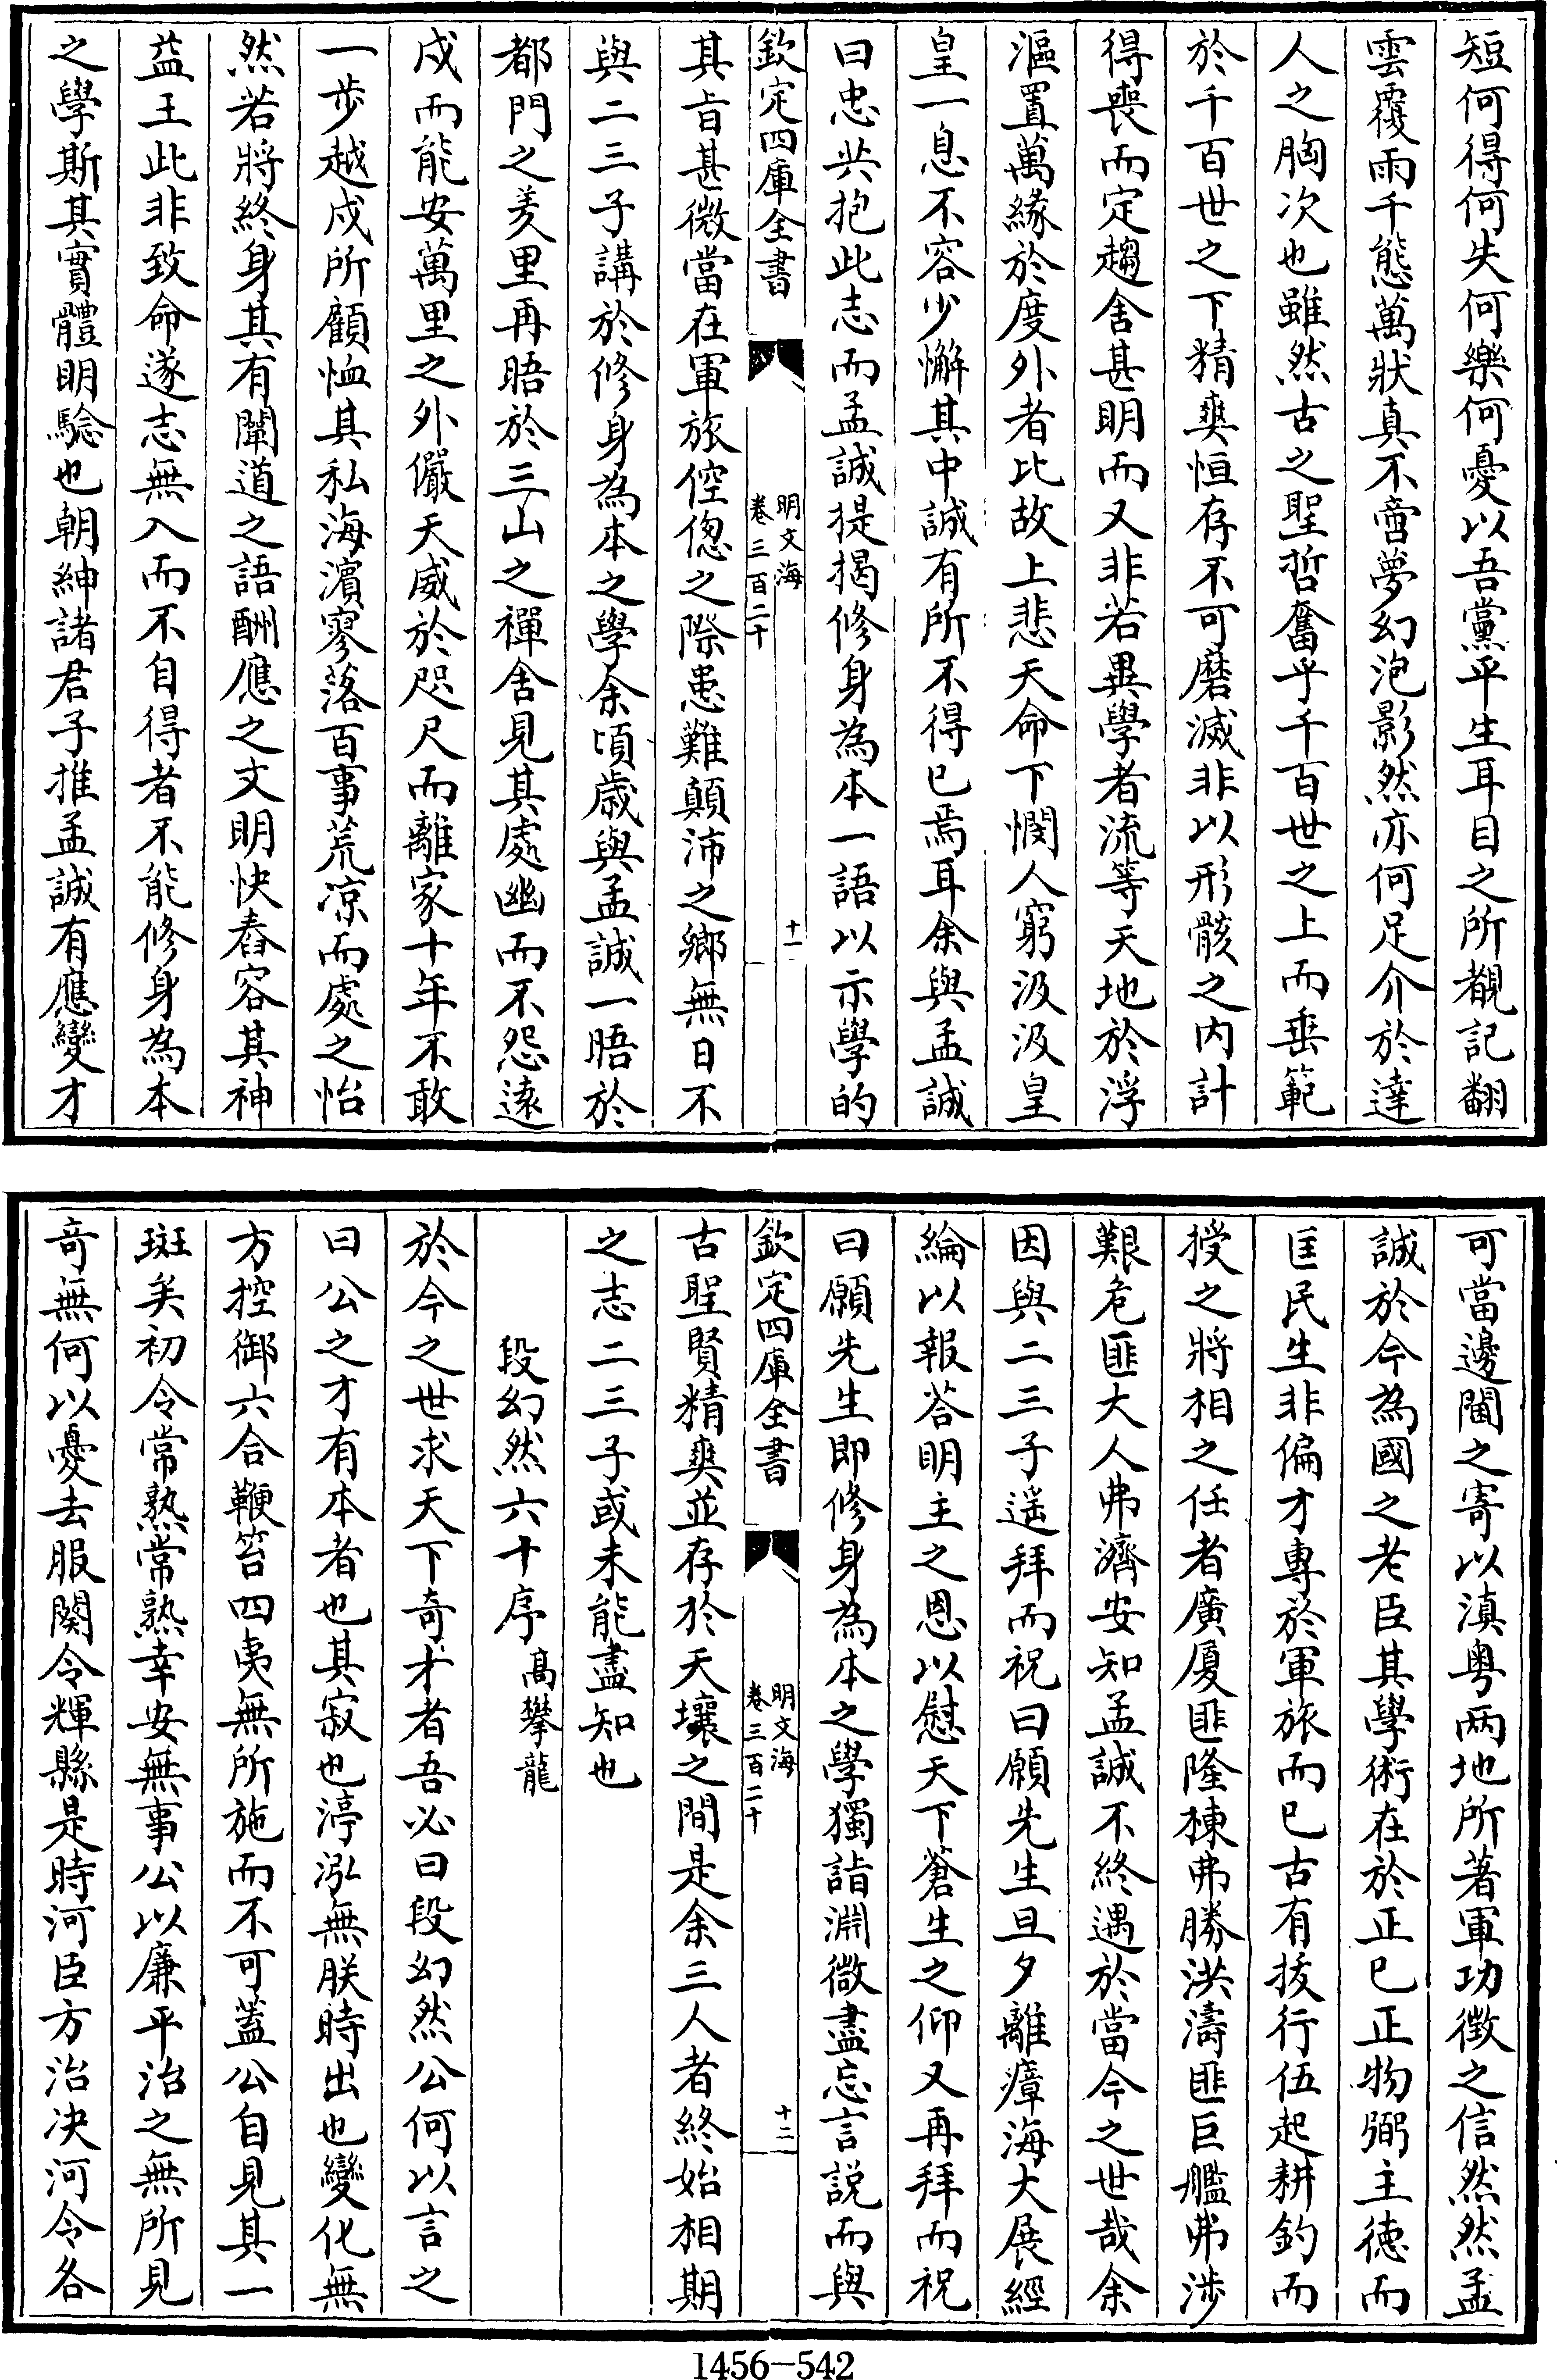 短何得何失何樂何憂以吾黨平生耳目之所覩記翻
雲覆雨千態萬狀真不啻夢幻泡影然亦何足介於達
人之胸次也雖然古之聖哲奮乎千百世之上而垂範
於千百世之下精爽恒存不可磨滅非以形骸之内計
得喪而定趨舍甚明而又非若異學者流等天地於浮
漚置萬緣於度外者比故上悲天命下憫人窮汲汲皇
皇一息不容少懈其中誠有所不得已焉耳余與孟誠
曰忠共抱此志而孟誠提掲修身為本一語以示學的
欽定四庫全書
明文海
卷三百二十
十一
其旨甚微當在軍旅倥偬之際患難顛沛之鄉無日不
與二三子講於修身為本之學余頃歳與孟誠一晤於
都門之羑里再晤於三山之禪舍見其處幽而不怨逺
戍而能安萬里之外儼天威於咫尺而離家十年不敢
一步越戍所顧恤其私海濵寥落百事荒凉而處之怡
然若將終身其有闡道之語酬應之文明快舂容其神
益王此非致命遂志無入而不自得者不能修身為本
之學斯其實體明驗也朝紳諸君子推孟誠有應變才
可當邊閫之寄以滇粤兩地所著軍功徴之信然然孟
誠於今為國之老臣其學術在於正已正物弼主徳而
匡民生非偏才專於軍旅而已古有拔行伍起耕釣而
授之將相之任者廣厦匪隆棟弗勝洪濤匪巨艦弗渉
艱危匪大人弗濟安知孟誠不終遇於當今之世哉余
因與二三子遥拜而祝曰願先生旦夕離瘴海大展經
綸以報荅明主之恩以慰天下蒼生之仰又再拜而祝
曰願先生即修身為本之學獨詣淵微盡忘言説而與
欽定四庫全書
明文海
卷三百二十
十二
古聖賢精爽並存於天壤之間是余三人者終始相期
之志二三子或未能盡知也
段幻然六十序 高攀龍
於今之世求天下奇才者吾必曰段幻然公何以言之
曰公之才有本者也其寂也渟泓無朕時出也變化無
方控御六合鞭笞四夷無所施而不可葢公自見其一
斑矣初令常熟常熟幸安無事公以廉平治之無所見
奇無何以憂去服闋令輝縣是時河臣方治决河令各
1456—542